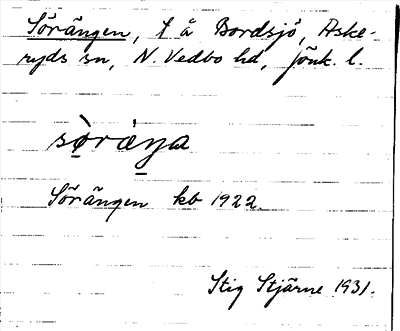 Sörängen, t å Bordsjö, Aske-
ryds sn, N. Vedbo hd, Jönk. l.
sø̀räŋa
Sörängen kb 1922.
Stig Stjärne 1931.